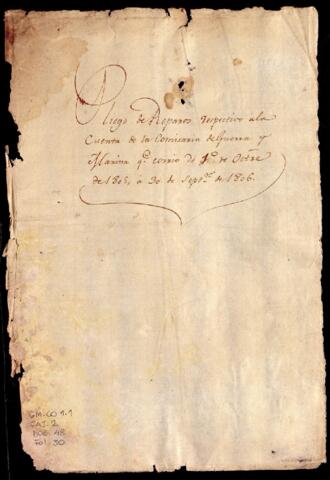 Pliego de Reparos respectivo a la
Cuenta de la Comicaria de Guerra y
Marina qe. corrio de 1o. de Octre
de 1805, a 30 de Septre. de 1806.
GM-CO 1.1
CAJ. 2
DOC. 48
Fol. 30